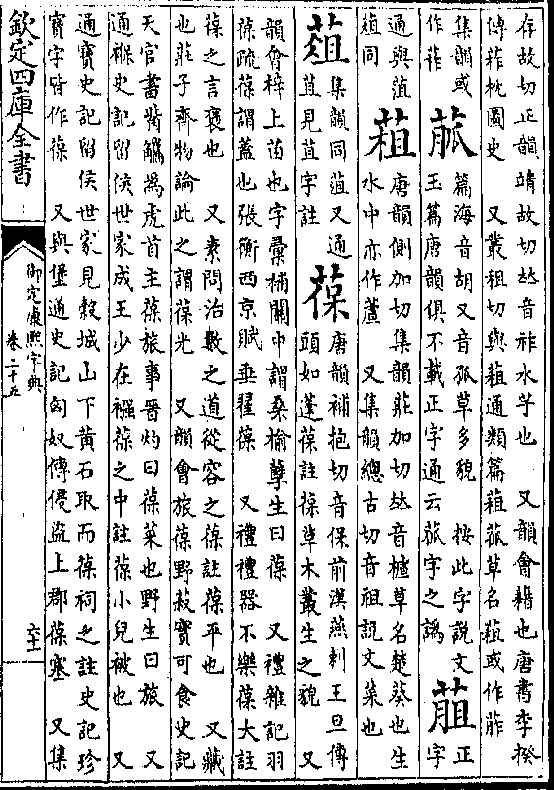 存故切正韻靖故切𠀤音祚水芋也　又韻會藉也唐書李揆
傳菹枕圖史　又叢租切與蒩通類篇蒩菰草名蒩或作葄
集韻或作葄
䓤
篇海音胡又音孤草多貌　按此字說文
玉篇唐韻俱不載正字通云菰字之譌
䔃
正字
通與菹葅同
蒩
唐韻側加切集韻莊加切𠀤音樝草名楚葵也生
水中亦作蘆　又集韻總古切音祖說文菜也
葅
集韻同菹又通
苴見苴字註
葆
唐韻補抱切音保前漢燕剌王旦傳
頭如蓬葆註葆草木叢生之貌　又
韻會梓上苗也字彙補關中謂桑榆孽生曰葆　又禮雜記羽
葆疏葆謂蓋也張衡西京賦垂翟葆　又禮禮器不樂葆大註
葆之言褒也　又素問治數之道從容之葆註葆平也　又藏
也莊子齊物論此之謂葆光　又韻會旅葆野菽實可食史記
天官書觜觿爲虎首主葆旅事晉灼曰葆菜也野生曰旅　又
通褓史記留侯世家成王少在襁葆之中註葆小兒被也　又
通寶史記留侯世家見穀城山下黃石取而葆祠之註史記珍
寶字皆作葆　又與堡通史記匈奴傳侵盜上郡葆塞　又集
欽定四庫全書
御定康熙字典
卷二十五
六十二